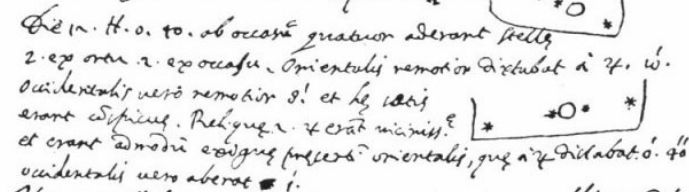 Die 12. H. 0. 40. ab occasu quatuor aderant stellę
2. ex ortu 2. ex occasu. Orientalis remotior distabat à ♃. 10'.
occidentalis verò remotior 8'. et hę satis
erant cōspicuę. Reliquę 2. ♃ erāt vicinissę
et erant admodū exiguę pręsertī orientalis, quę à ♃ distabat. 0'. 40"
occidentalis vero aberat 1'.